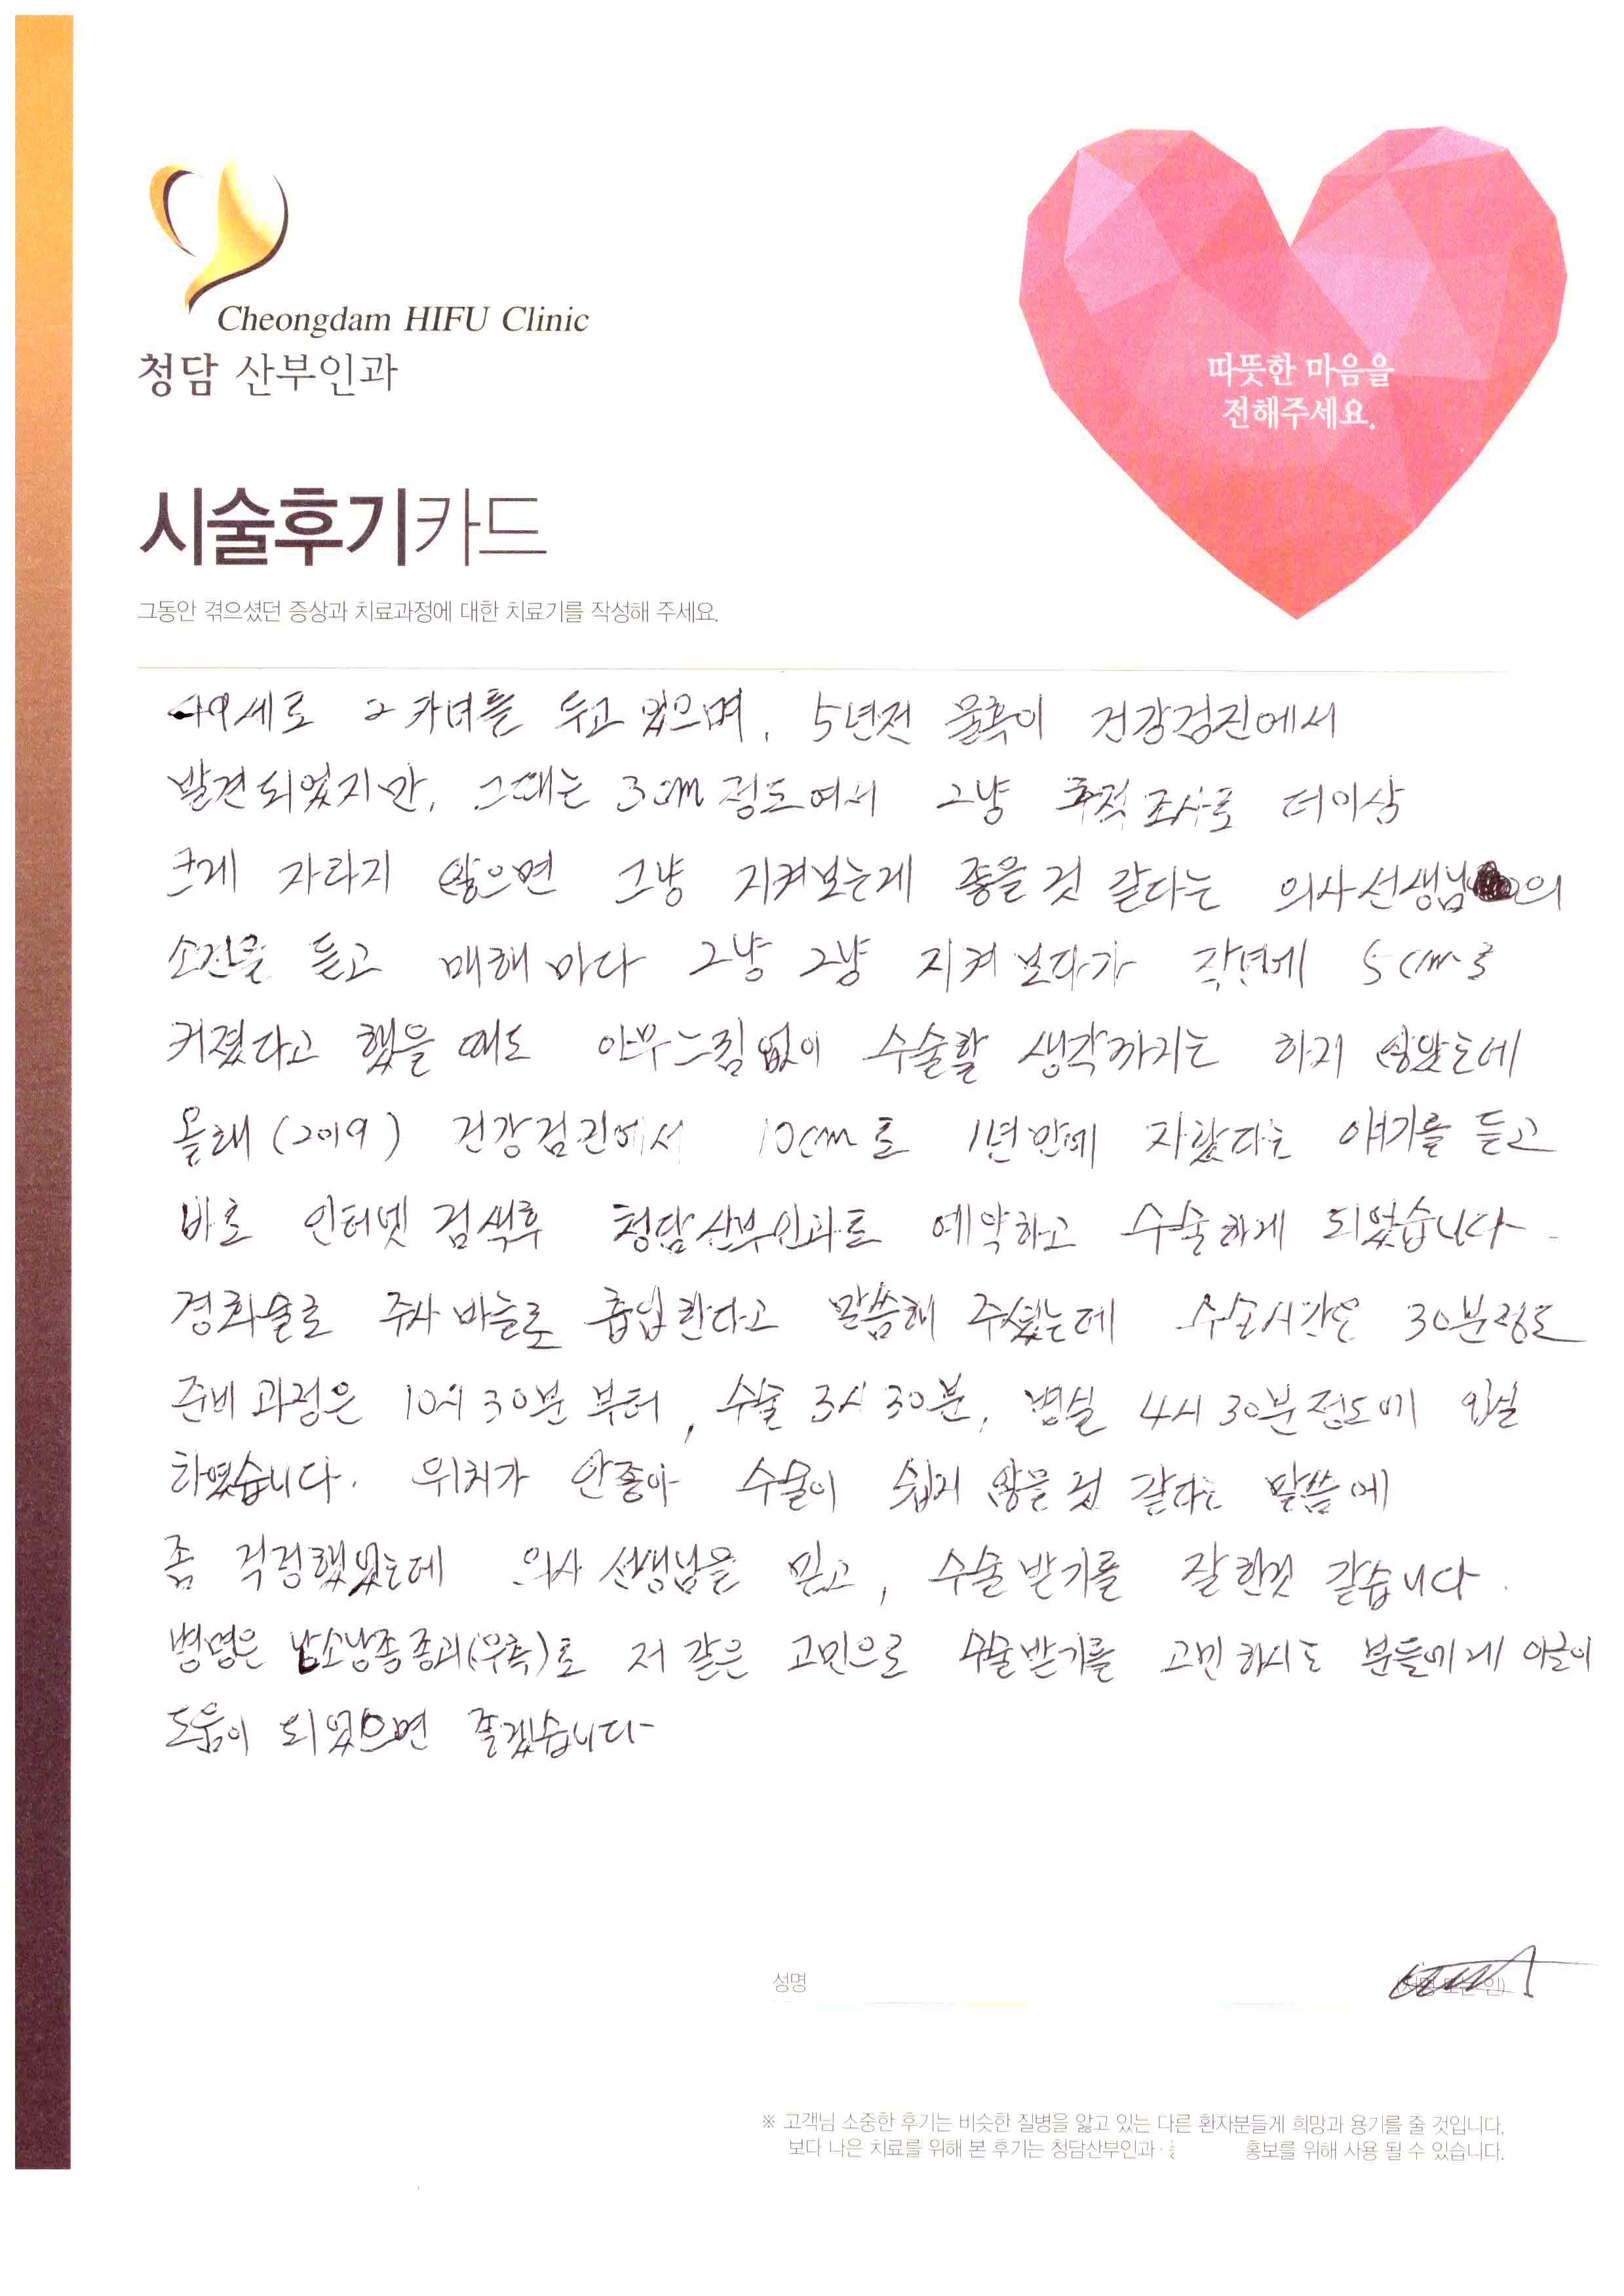 Cheongdam HIFU Clinic
청담 산부인과
따뜻한 마음을
전해주세요.
시술후기카드
그동안 겪으셨던 증상과 치료과정에 대한 치료기를 작성해 주세요.
49세로 2자녀를 두고 있으며, 5년전 물혹이 건강검진에서
발견되었지만, 그때는 3cm 정도여서 그냥 추적 조사로 더이상
크게 자라지 않으면 그냥 지켜보는게 좋을 것 같다는 의사선생님의
소견을 듣고 매해마다 그냥 그냥 지켜보다가 작년에 5cm로
커졌다고 했을 때도 아무느낌없이 수술할 생각까지는 하지 않았는데
올해 (2019) 건강검진에서 10cm로 1년만에 자랐다는 얘기를 듣고
바로 인터넷 검색후 청담산부인과로 예약하고 수술하게 되었습니다.
경화술로 주사 바늘로 흡입한다고 말씀해 주셨는데 수술시간은 30분정도
준비과정은 10시 30분 부터, 수술 3시 30분, 병실 4시 30분정도에 입실
하였습니다. 위치가 안좋아 수술이 쉽지 않을 것 같다는 말씀에
좀 걱정했었는데 의사 선생님을 믿고, 수술받기를 잘한것 같습니다.
병명은 난소낭종종괴(우측)로 저 같은 고민으로 수술받기를 고민하시는 분들에게 이글이
도움이 되었으면 좋겠습니다
성명
※ 고객님 소중한 후기는 비슷한 질병을 앓고 있는 다른 환자분들게 희망과 용기를 줄 것입니다.
보다 나은 치료를 위해 본 후기는 청담산부인과· 홍보를 위해 사용 될 수 있습니다.